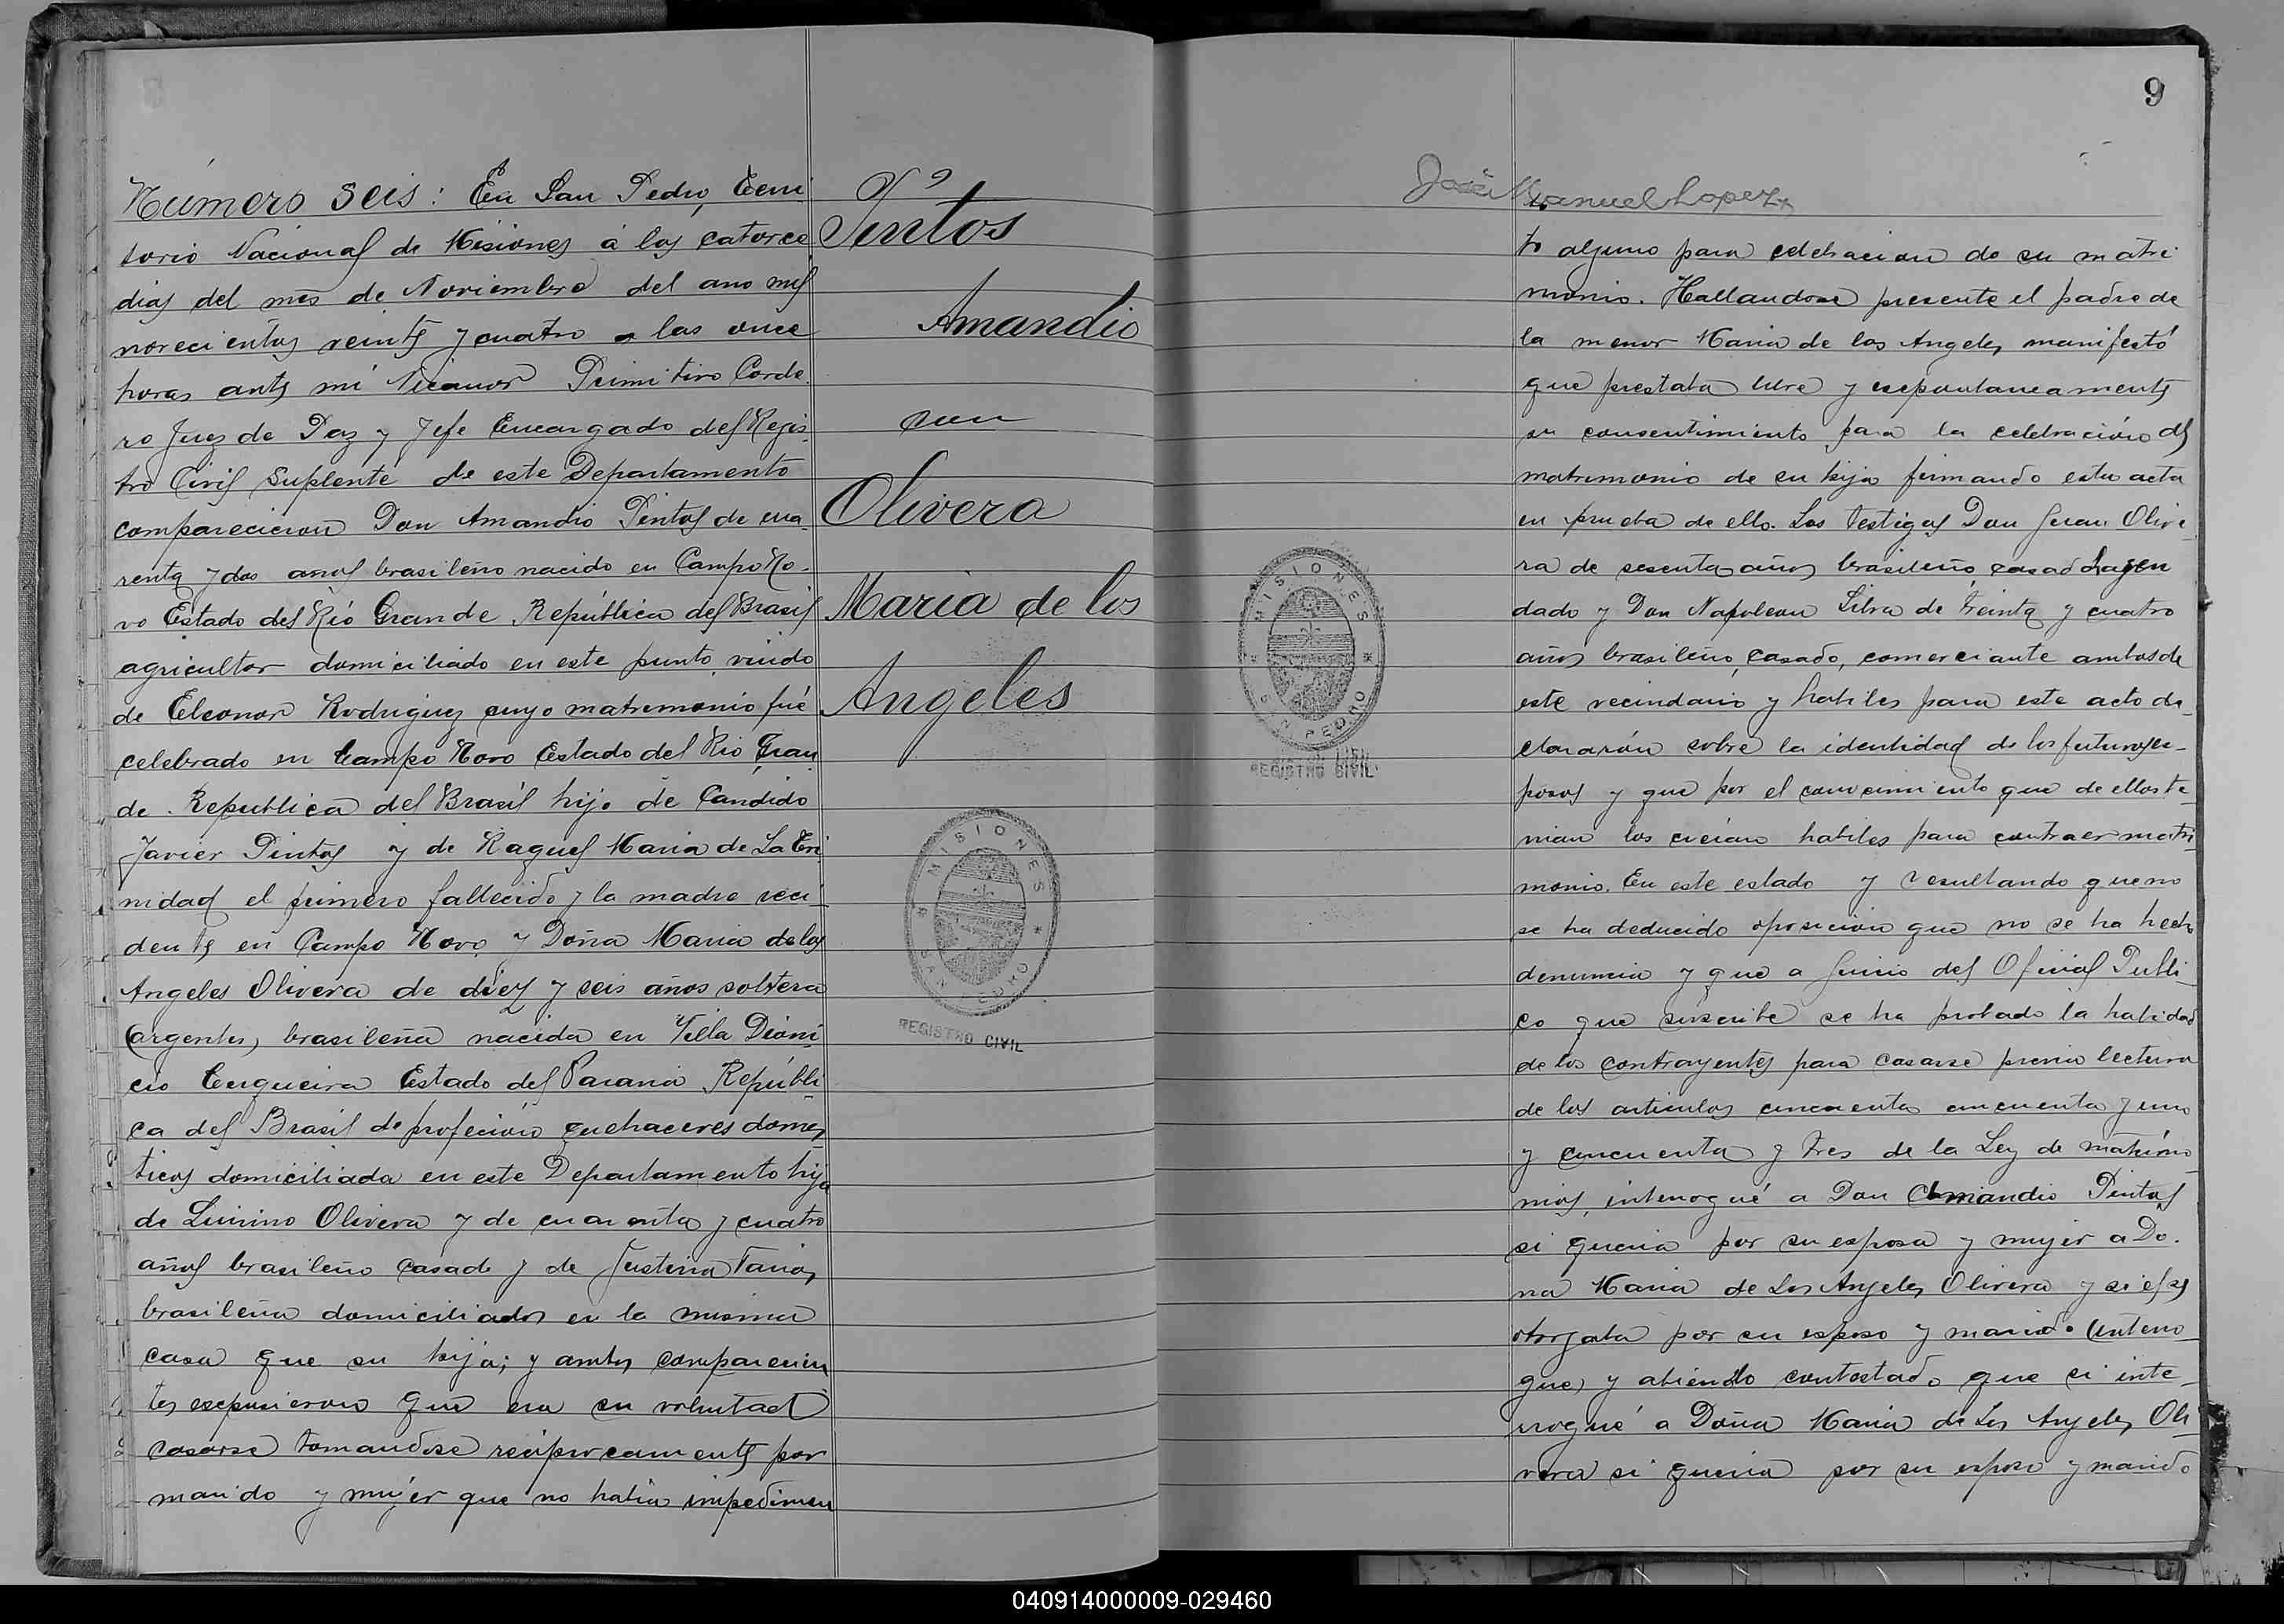 Número seis: En San Pedro, Terri
torio Nacional de Misiones á los catorce
dias del mes de Noviembre del ano mil
novecientos veinte y cuatro a las once
horas ante mi Nicanor Primitivo Corde
ro Juez de Paz y Jefe Encargado del Regis
tro Civil Suplente de este Departamento
comparecieron Don Amandio Pintos de cua
renta y dos años brasileño nacido en Campo No
vo Estado del Rio Grande República del Brasil
agricultor domiciliado en este punto viudo
de Eleonor Rodriguez cuyo matrimonio fué
celebrado en Campo Novo Estado del Rio Gran
de República del Brasil hijo de Candido
Javier Pintos y de Raquel Maria de La Tri
nidad el primero fallecido y la madre reci
dente en Campo Novo y Doña Maria de los
Angeles Olivera de diez y seis años soltera
(argentes) brasileña nacida en Villa Dioni
cio Cerqueira Estado del Paraná Repúbli
ca del Brasil de profeción quehaceres domes
ticos domiciliada en este Departamento hija
de Olivera y de cuarenta y cuatro
años brasileño casado y de Justina
brasileña domiciliados en la misma
casa que su hija; y ambos comparecien
tes expusieron que era su voluntad
casarse tomandose reciprocamente por
marido y mujer que no habia impedimen
Nº 9
Pintos
Amandio
con
Olivera
Maria de los
Angeles
MISIONES
SAN PEDRO
REGISTRO CIVIL
9
José Manuel Lopez
to alguno para celebracion de su matri
monio. Hallandose presente el padre de
la menor Maria de los Angeles manifestó
que prestaba libre y espontaneamente
su consentimiento para la celebración del
matrimonio de su hija firmando esta acta
en prueba de ello. Los testigos Don Juan Olive
ra de sesenta años brasileño casado hacen
dado y Don Napoleon Silva de treinta y cuatro
años brasileño, casado, comerciante ambos de
este vecindario y habiles para este acto de
clararón sobre la identidad de los futuros es
posos y que por el conocimiento que de ellos te
nian los creian habiles para contraer matri
monio. En este estado y resultando que no
se ha deducido oposicion que no se ha hecho
denuncia y que a juicio del Oficial Publi
co que suscribe se ha probado la habidad
de los contrayentes para casarse previa lectura
de los articulos cincuenta cincuenta y uno
y cincuenta y tres de la Ley de matrimo
nios, interrogué a Don Amandio Pintos
si queria por su esposa y mujer a Do
na Maria de Los Angeles Olivera y si
otorgaba por su esposo y marido (interro
gue) y abiendo contestado que si inte
rrogué a Doña Maria de Los Angeles Oli
vera si queria por su esposo y marido
MISIONES
SAN PEDRO
REGISTRO CIVIL
040914000009-029460